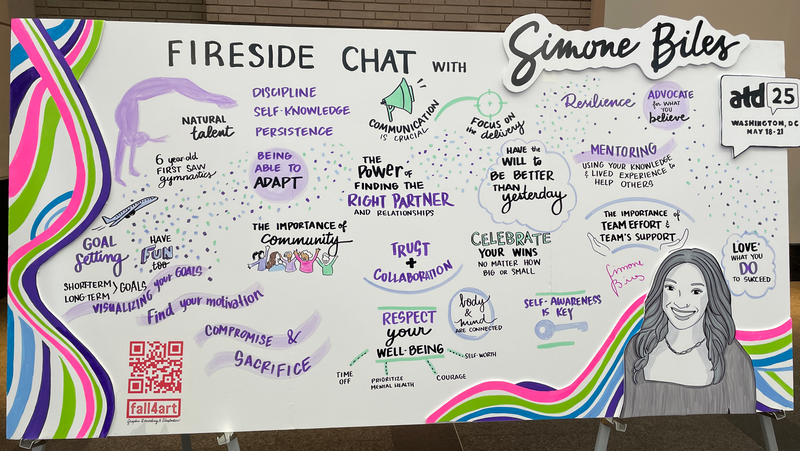 FIRESIDE CHAT WITH
Simone Biles
atd 25
WASHINGTON, DC
MAY 18-21
NATURAL
talent
6 year old
FIRST SAW
gymnastics
DISCIPLINE
SELF-KNOWLEDGE
PERSISTENCE
COMMUNICATION
IS CRUCIAL
FOCUS ON
the delivery
Resilience
ADVOCATE
for WHAT
YOU
believe
BEING
ABLE TO
ADAPT
THE
Power of
FINDING THE
RIGHT PARTNER
AND RELATIONSHIPS
HAVE the
WILL to
BE BETTER
THAN
yesterday
MENTORING
USING YOUR KNOWLEDGE
& LIVED EXPERIENCE to
HELP OTHERS
GOAL
Setting
HAVE
FUN
too
SHORT-TERM
LONG-TERM > GOALS
VISUALIZING your GOALS
Find your motivation
THE IMPORTANCE of
Community
TRUST
+
COLLABORATION
CELEBRATE
YOUR WINS
NO MATTER HOW
BIG OR SMALL.
THE IMPORTANCE of
TEAM EFFORT &
TEAM'S SUPPORT
LOVE
WHAT YOU
DO
TO SUCCEED
Simone
Biles
COMPROMISE &
SACRIFICE
RESPECT
your
WELL-BEING
TIME
OFF
PRIORITIZE
MENTAL HEALTH
COURAGE
SELF-WORTH
body
&
mind
ARE CONNECTED
SELF-AWARENESS
IS KEY
fall4art
Graphic Recording & Illustration